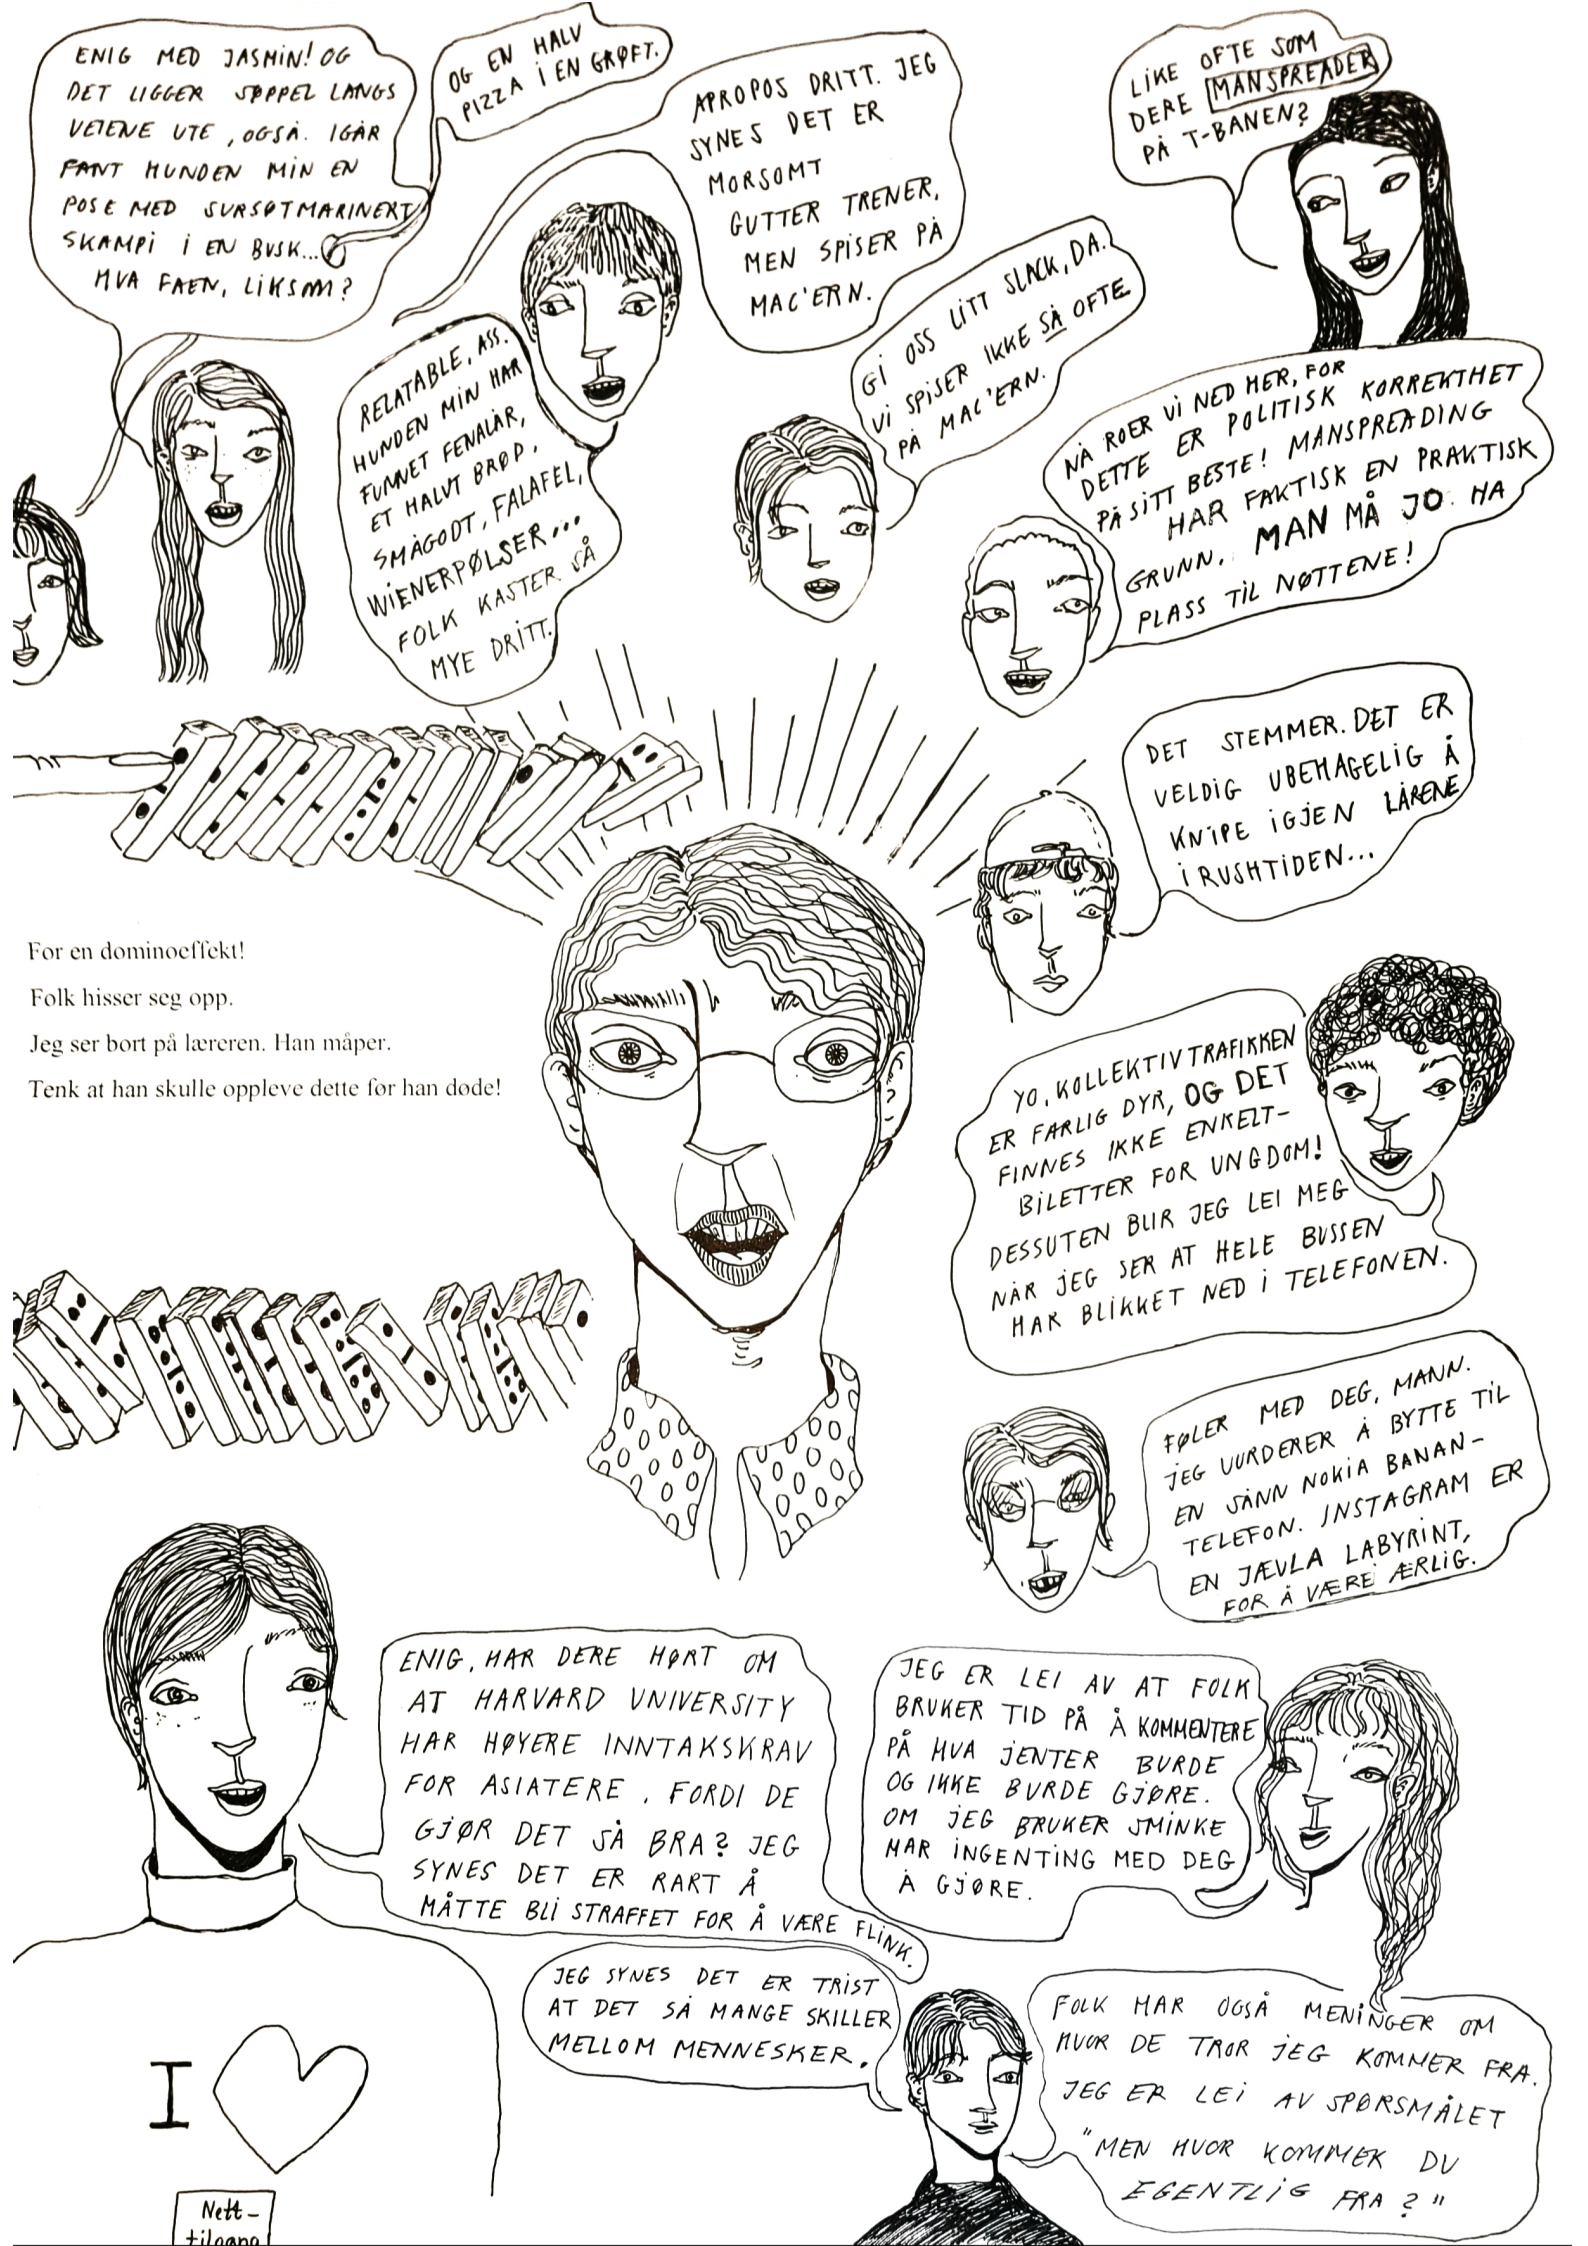 ENIG MED JASMIN! OG
DET LIGGER SØPPEL LANGS
VEIENE UTE, OGSÅ. IGÅR
FANT HUNDEN MIN EN
POSE MED SURSØTMARINERT
SKAMPI I EN BUSK...
HVA FAEN, LIKSOM?
OG EN HALV
PIZZA I EN GRØFT.
APROPOS DRITT. JEG
SYNES DET ER
MORSOMT
GUTTER TRENER,
MEN SPISER PÅ
MAC'ERN.
LIKE OFTE SOM
DERE MANSPREADER
PÅ T-BANEN?
GI OSS LITT SLACK, DA.
VI SPISER IKKE SÅ OFTE
PÅ MAC'ERN.
RELATABLE, ASS.
HUNDEN MIN HAR
FUNNET FENALÅR,
ET HALVT BRØD,
SMÅGODT, FALAFEL,
WIENERPØLSER...
FOLK KASTER SÅ
MYE DRITT.
NÅ ROER VI NED HER, FOR
DETTE ER POLITISK KORREKTHET
PÅ SITT BESTE! MANSPREADING
HAR FAKTISK EN PRAKTISK
GRUNN. MAN MÅ JO HA
PLASS TIL NØTTENE!
DET STEMMER. DET ER
VELDIG UBEHAGELIG Å
KNIPE IGJEN LÅRENE
I RUSHTIDEN...
For en dominoeffekt!
Folk hisser seg opp.
Jeg ser bort på læreren. Han måper.
Tenk at han skulle oppleve dette før han døde!
YO, KOLLEKTIVTRAFIKKEN
ER FARLIG DYR, OG DET
FINNES IKKE ENKELT-
BILETTER FOR UNGDOM!
DESSUTEN BLIR JEG LEI MEG
NÅR JEG SER AT HELE BUSSEN
HAR BLIKKET NED I TELEFONEN.
FØLER MED DEG, MANN.
JEG VURDERER Å BYTTE TIL
EN SÅNN NOKIA BANAN-
TELEFON. INSTAGRAM ER
EN JÆVLA LABYRINT,
FOR Å VÆRE ÆRLIG.
ENIG, HAR DERE HØRT OM
AT HARVARD UNIVERSITY
HAR HØYERE INNTAKSKRAV
FOR ASIATERE, FORDI DE
GJØR DET SÅ BRA? JEG
SYNES DET ER RART Å
MÅTTE BLI STRAFFET FOR Å VÆRE FLINK.
JEG ER LEI AV AT FOLK
BRUKER TID PÅ Å KOMMENTERE
PÅ HVA JENTER BURDE
OG IKKE BURDE GJØRE.
OM JEG BRUKER SMINKE
HAR INGENTING MED DEG
Å GJØRE.
JEG SYNES DET ER TRIST
AT DET SÅ MANGE SKILLER
MELLOM MENNESKER.
FOLK HAR OGSÅ MENINGER OM
HVOR DE TROR JEG KOMMER FRA.
JEG ER LEI AV SPØRSMÅLET
"MEN HVOR KOMMER DU
EGENTLIG FRA?"
I
Nett-
tilgang